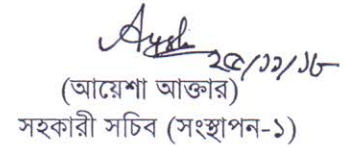 ২৫/১১/১৮
(আয়েশা আক্তার)
সহকারী সচিব (সংস্থাপন-১)